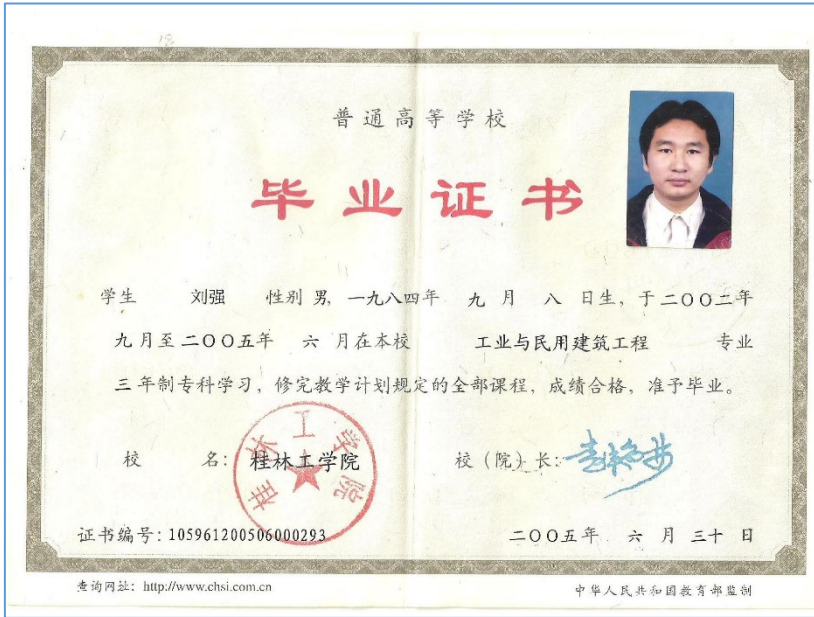 普通高等学校
毕业证书
学生 刘强 性别 男, 一九八四年 九 月 八 日生, 于二〇〇二年
九月至二〇〇五年 六 月在本校 工业与民用建筑工程 专业
三 年制专科学习, 修完教学计划规定的全部课程, 成绩合格, 准予毕业。
校 名: 桂林工学院 校 (院) 长:
桂林工学院
证书编号: 105961200506000293 二〇〇五年 六 月 三十 日
查询网址: http://www.chsi.com.cn 中华人民共和国教育部监制